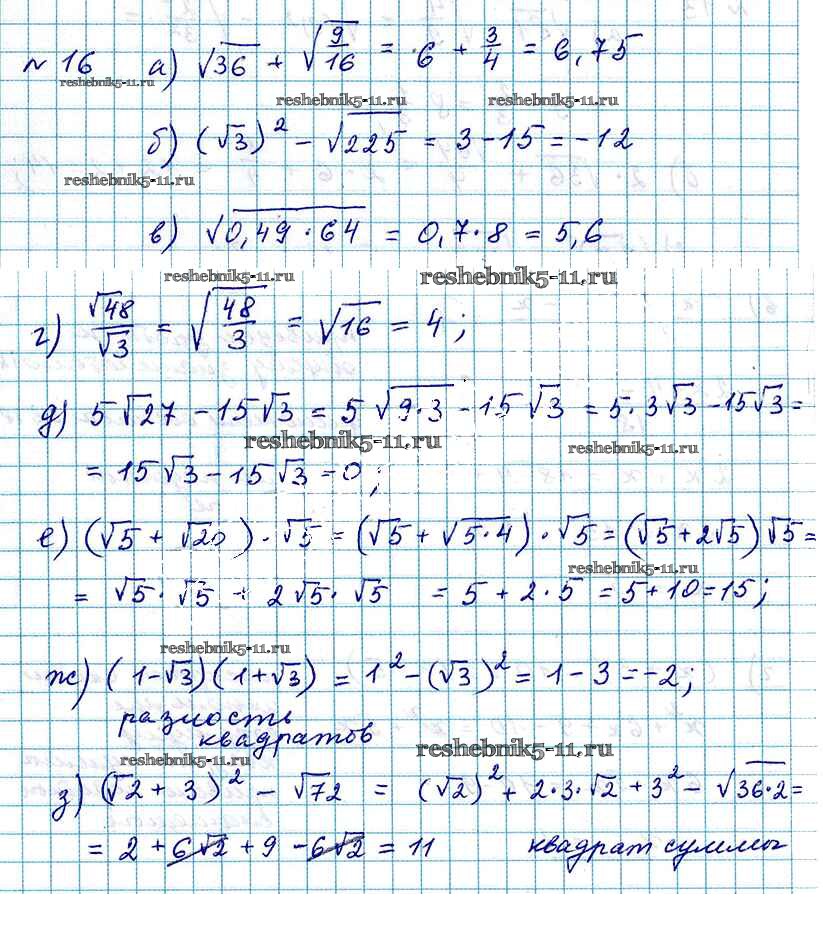 № 16 а) √36 + √(9/16) = 6 + 3/4 = 6,75
reshebnik5-11.ru
reshebnik5-11.ru reshebnik5-11.ru
б) (√3)² - √225 = 3 - 15 = -12
reshebnik5-11.ru
в) √(0,49 · 64) = 0,7 · 8 = 5,6
reshebnik5-11.ru reshebnik5-11.ru
г) √48/√3 = √(48/3) = √16 = 4;
д) 5√27 - 15√3 = 5√(9·3) - 15√3 = 5·3√3 - 15√3 =
reshebnik5-11.ru reshebnik5-11.ru
= 15√3 - 15√3 = 0;
е) (√5 + √20) · √5 = (√5 + √(5·4)) · √5 = (√5 + 2√5)√5 =
reshebnik5-11.ru
= √5 · √5 + 2√5 · √5 = 5 + 2·5 = 5 + 10 = 15;
reshebnik5-11.ru
ж) (1-√3)(1+√3) = 1² - (√3)² = 1 - 3 = -2;
разность
квадратов
reshebnik5-11.ru reshebnik5-11.ru
з) (√2 + 3)² - √72 = (√2)² + 2·3·√2 + 3² - √(36·2) =
= 2 + 6√2 + 9 - 6√2 = 11 квадрат суммы